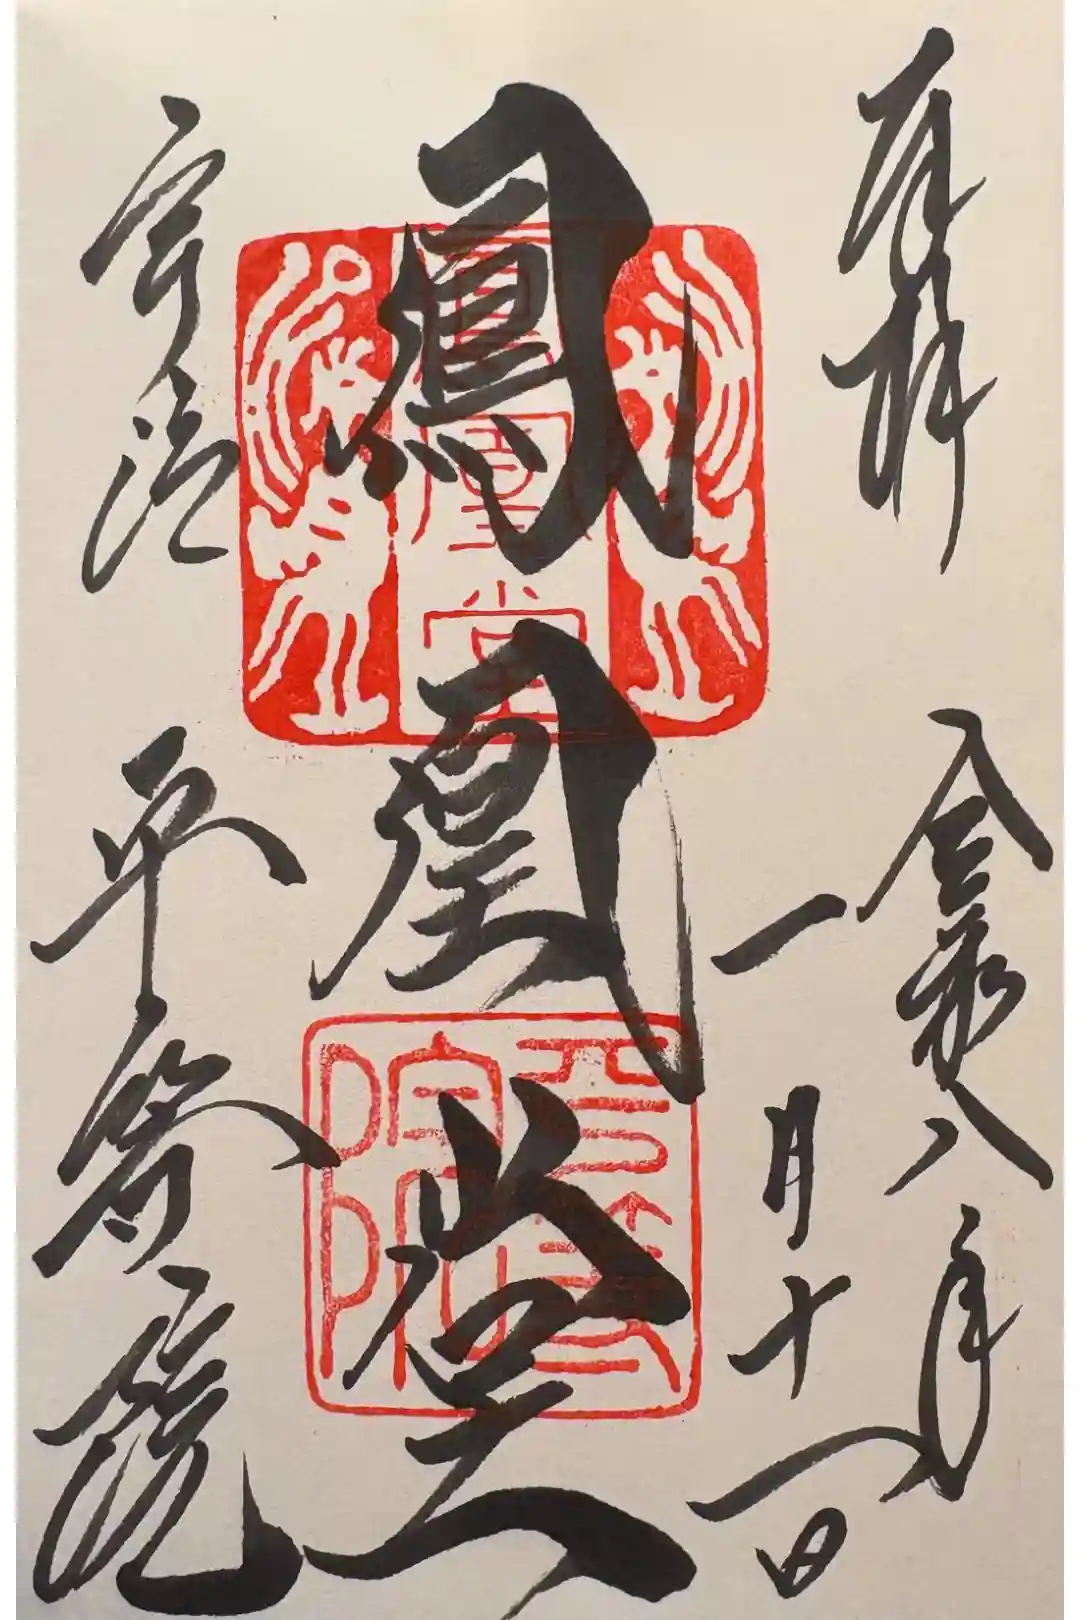 奉拝
令和八年
一月十一日
鳳凰堂
鳳凰堂
宇治
平等院